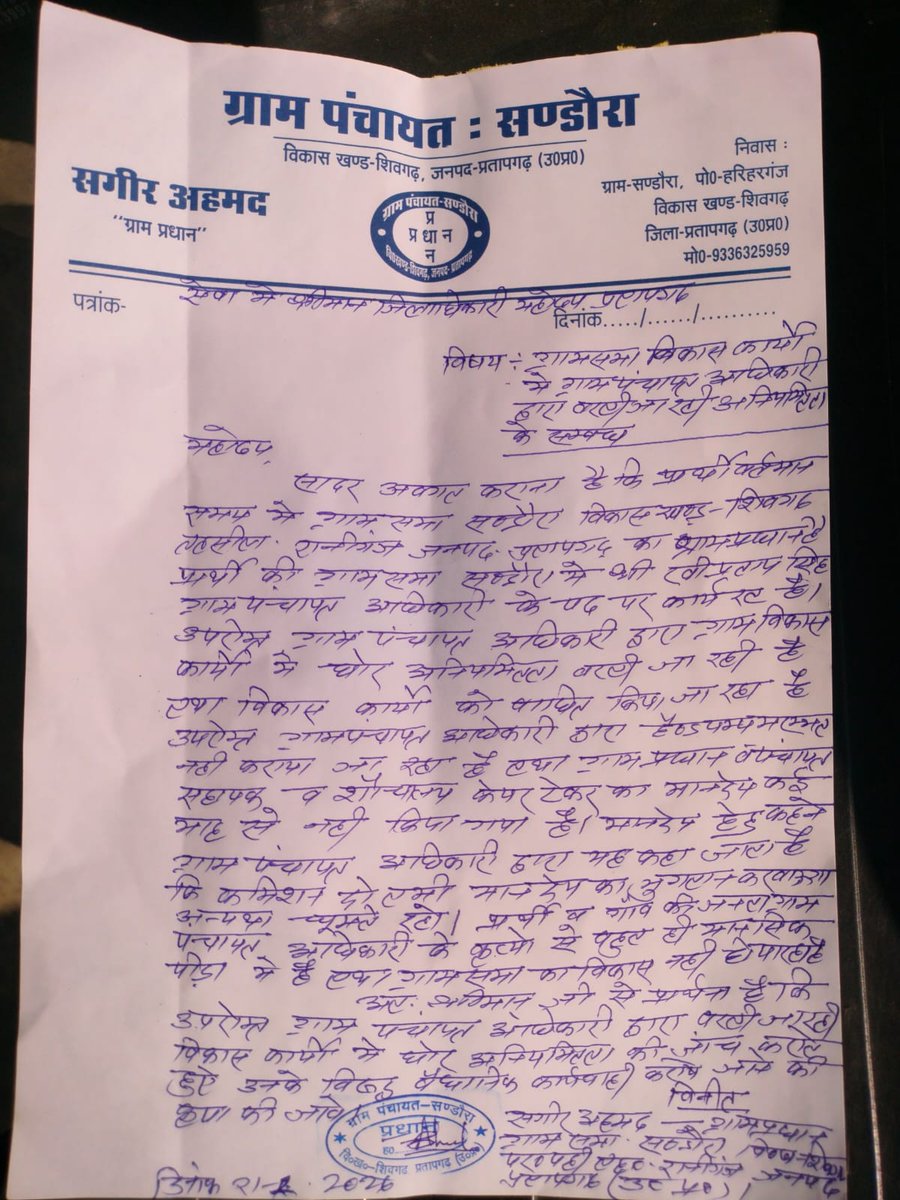 ग्राम पंचायत : सण्डौरा
विकास खण्ड-शिवगढ़, जनपद-प्रतापगढ़ (उ0प्र0)
सगीर अहमद
"ग्राम प्रधान"
ग्राम पंचायत-सण्डौरा
प्र
प्र धा न
न
वि0खण्ड-शिवगढ़, जनपद-प्रतापगढ़
निवास :
ग्राम-सण्डौरा, पो0-हरिहरगंज
विकास खण्ड-शिवगढ़
जिला-प्रतापगढ़ (उ0प्र0)
मो0-9336325959
पत्रांक-
सेवा मे श्रीमान जिलाधिकारी महोदय प्रतापगढ
दिनांक...../....../..........
विषय :- ग्रामसभा विकास कार्यो
मे ग्राम पंचायत अधिकारी
द्वारा बरती जा रही अनियमितता
के सम्बन्ध
महोदय,
सादर अवगत कराना है कि प्रार्थी वर्तमान
समय मे ग्राम सभा सण्डौरा विकास खण्ड- शिवगढ
तहसील- रानीगंज जनपद- प्रतापगढ का ग्राम प्रधान है
प्रार्थी की ग्राम सभा सण्डौरा मे श्री रवी प्रताप सिंह
ग्राम पंचायत अधिकारी के पद पर कार्य रत है।
उपरोक्त ग्राम पंचायत अधिकारी द्वारा ग्राम विकास
कार्यो मे घोर अनियमितता बरती जा रही है
तथा विकास कार्यो को बाधित किया जा रहा है
उपरोक्त ग्राम पंचायत अधिकारी द्वारा हैण्डपम्प मरम्मत
नही कराया जा रहा है तथा ग्राम प्रधान व पंचायत
सहायक व शौचालय केयर टेकर का मानदेय कई
माह से नही किया गया है। मानदेय हेतु कहने
ग्राम पंचायत अधिकारी द्वारा यह कहा जाता है
कि कमिशन दो तभी मानदेय का भुगतान करवाऊगा
अन्यथा घूमते रहो। प्रार्थी व गांव की जनता ग्राम
पंचायत अधिकारी के कृत्यो से बहुत ही मानसिक
पीड़ा मे है तथा ग्राम सभा का विकास नही हो पा रहा है
अतः श्रीमान जी से प्रार्थना है कि
उपरोक्त ग्राम पंचायत अधिकारी द्वारा बरती जा रही
विकास कार्यो मे घोर अनियमितता की जांच कराते
हुए उनके विरूद्ध वैधानिक कार्यवाही कराये जाने की
कृपा की जावे।
विनीत
सगीर अहमद ग्राम प्रधान
ग्राम सभा- सण्डौरा वि0ख0-शिवगढ
तहसील- रानीगंज जनपद
प्रतापगढ (उ0 प्र0)।
ग्राम पंचायत-सण्डौरा
प्रधान
ह0
वि0ख0-शिवगढ़ प्रतापगढ़ (उ0प्र0)
दिनांक 2026